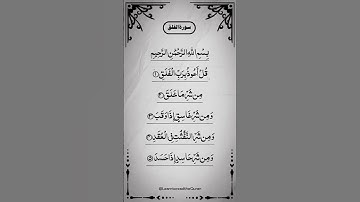 سورة الفلق
بِسْمِ اللَّهِ الرَّحْمَٰنِ الرَّحِيمِ
قُلْ أَعُوذُ بِرَبِّ الْفَلَقِ ١
مِن شَرِّ مَا خَلَقَ ٢
وَمِن شَرِّ غَاسِقٍ إِذَا وَقَبَ ٣
وَمِن شَرِّ النَّفَّٰثَٰتِ فِي الْعُقَدِ ٤
وَمِن شَرِّ حَاسِدٍ إِذَا حَسَدَ ٥